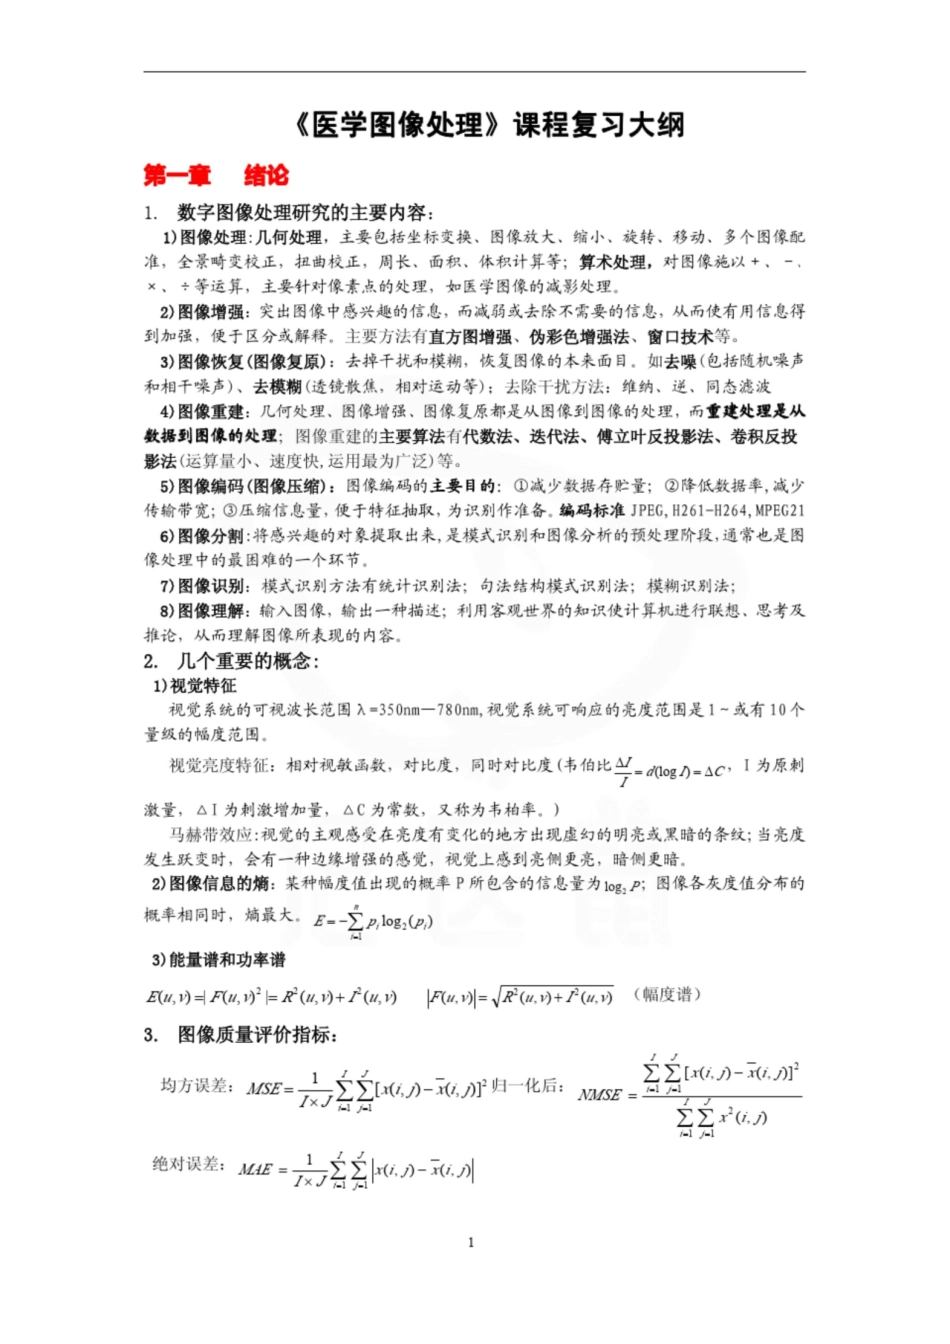 《医学图像处理》课程复习大纲
第一章 绪论
1. 数字图像处理研究的主要内容：
1)图像处理:几何处理，主要包括坐标变换、图像放大、缩小、旋转、移动、多个图像配
准，全景畸变校正，扭曲校正，周长、面积、体积计算等；算术处理，对图像施以＋、－、
×、÷等运算，主要针对像素点的处理，如医学图像的减影处理。
2)图像增强：突出图像中感兴趣的信息，而减弱或去除不需要的信息，从而使有用信息得
到加强，便于区分或解释。主要方法有直方图增强、伪彩色增强法、窗口技术等。
3)图像恢复(图像复原)：去掉干扰和模糊，恢复图像的本来面目。如去噪(包括随机噪声
和相干噪声)、去模糊(透镜散焦，相对运动等)；去除干扰方法：维纳、逆、同态滤波
4)图像重建：几何处理、图像增强、图像复原都是从图像到图像的处理，而重建处理是从
数据到图像的处理；图像重建的主要算法有代数法、迭代法、傅立叶反投影法、卷积反投
影法(运算量小、速度快,运用最为广泛)等。
5)图像编码(图像压缩)：图像编码的主要目的：①减少数据存贮量；②降低数据率,减少
传输带宽；③压缩信息量，便于特征抽取，为识别作准备。编码标准 JPEG,H261-H264,MPEG21
6)图像分割:将感兴趣的对象提取出来,是模式识别和图像分析的预处理阶段,通常也是图
像处理中的最困难的一个环节。
7)图像识别：模式识别方法有统计识别法；句法结构模式识别法；模糊识别法；
8)图像理解：输入图像，输出一种描述；利用客观世界的知识使计算机进行联想、思考及
推论，从而理解图像所表现的内容。
2. 几个重要的概念：
1)视觉特征
视觉系统的可视波长范围λ=350nm—780nm,视觉系统可响应的亮度范围是1～或有10个
量级的幅度范围。
视觉亮度特征：相对视敏函数，对比度，同时对比度(韦伯比 ΔI/I = d(log I) = ΔC，I为原刺
激量，△I为刺激增加量，△C为常数，又称为韦柏率。)
马赫带效应:视觉的主观感受在亮度有变化的地方出现虚幻的明亮或黑暗的条纹;当亮度
发生跃变时，会有一种边缘增强的感觉，视觉上感到亮侧更亮，暗侧更暗。
2)图像信息的熵：某种幅度值出现的概率P所包含的信息量为 log₂ P；图像各灰度值分布的
概率相同时，熵最大。E=-∑(i=1..n) pᵢ log₂(pᵢ)
3)能量谱和功率谱
E(u,v)=|F(u,v)²|=R²(u,v)+I²(u,v) |F(u,v)|=√(R²(u,v)+I²(u,v)) （幅度谱）
3. 图像质量评价指标：
均方误差：MSE=1/(I×J) ∑(i=1..I)∑(j=1..J)[x(i,j)-x̅(i,j)]² 归一化后：NMSE=∑(i=1..I)∑(j=1..J)[x(i,j)-x̅(i,j)]² / ∑(i=1..I)∑(j=1..J)x²(i,j)
绝对误差：MAE=1/(I×J) ∑(i=1..I)∑(j=1..J)|x(i,j)-x̅(i,j)|
1